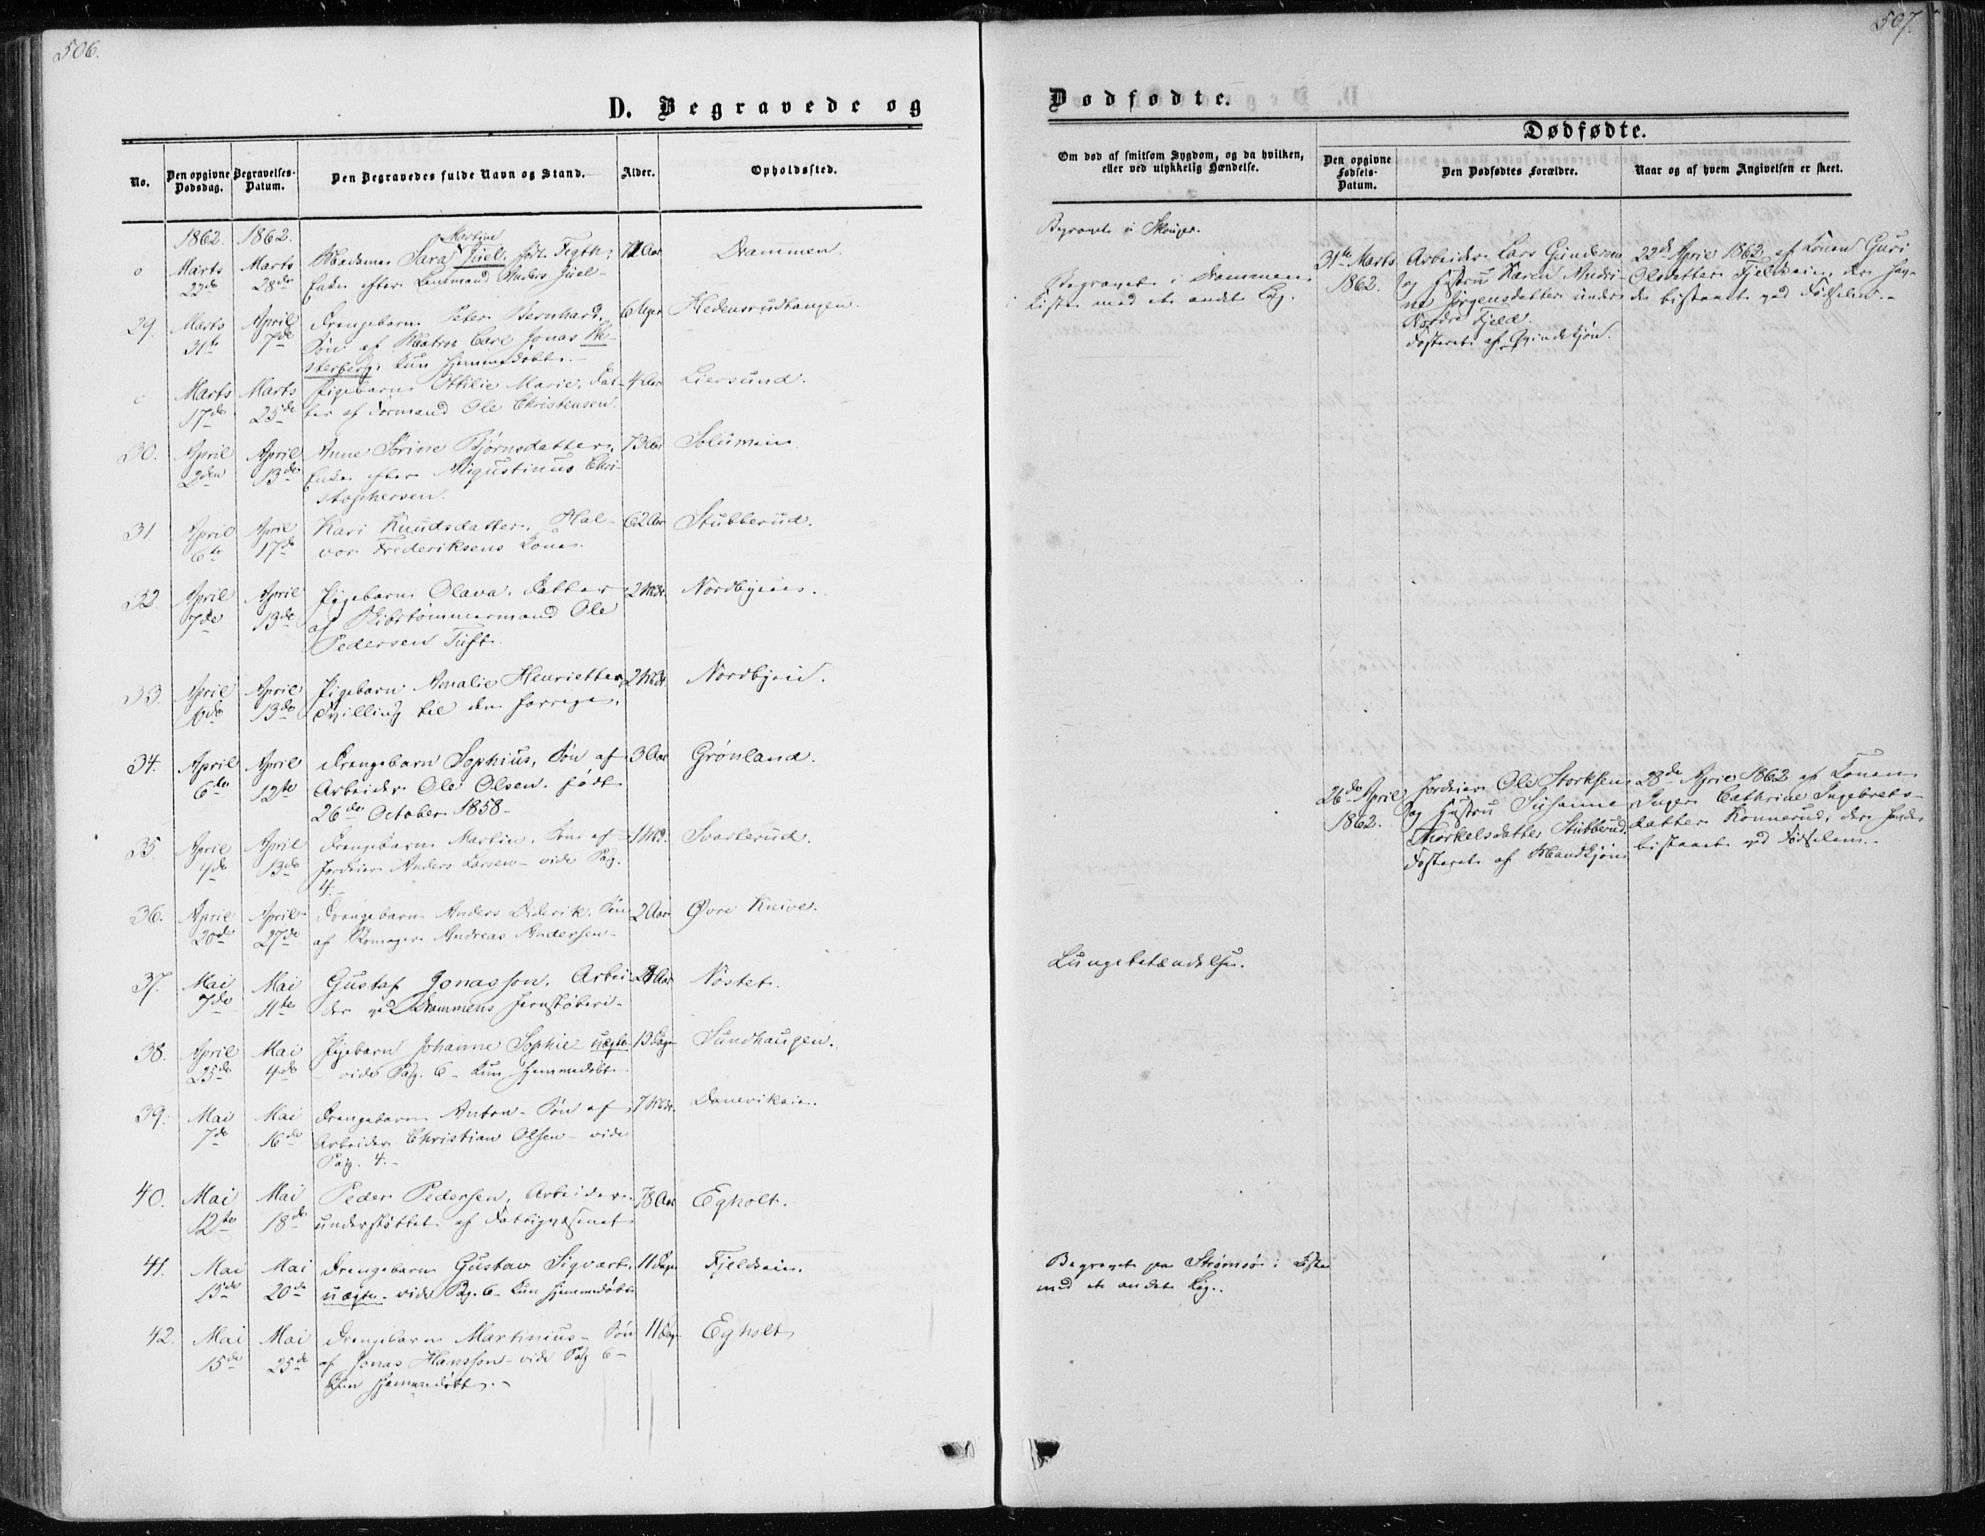 506.
D. Begravede og
No.
Den opgivne Dødsdag.
Begravelses-Datum.
Den Begravedes fulde Navn og Stand.
Alder.
Opholdssted.
1862. 1862. Martine
o Marts Marts Madame Sara Juel, født 71 Aar Drammen.
22de 28de Enke efter Lensmand Anders Juel
29. Marts April Drengebarn Peter Bernhard, 6 Uger Hedensrudhaugen.
31te 7de Søn af Matros Carl Jonas
kun hjemmedøbt.
Marts Marts Pigebarn Ottilie Marie, Dat- 4 Aar Liersund.
17de 25de ter af Formand Ole Christensen.
30. April April Anne Sørine Bjørnsdatter, 73 Aar
2den 13de Enke efter Augustinus Chri-
stophersen.
31 April April Kari Knudsdatter, Hal- 62 Aar Stubberud.
6te 17de vor Frederiksens Kone.
32. April April Pigebarn Olava, Datter 2 Mdr. Nordbyeie.
7de 13de af Skibstømmermand Ole
Pedersen Tuft.
33. April April Pigebarn Amalie Henriette, 2 Mdr. Nordbyeie.
10de 13de Tvilling til den forrige.
34. April April Drengebarn Sophius, Søn af 3 Aar Grønland.
6te 12te Arbeider Ole Olsen, født
26de October 1858-
35. April April Drengebarn Martin, Søn af 1 Md. Svarterud.
4de 13de Anders Larsen- vide Pag.
4.
36. April April Drengebarn Anders Diderik, Søn 2 Aar Øvre Knive.
20de 27de af Skomager Andreas Andersen-
37. Mai Mai Gustaf Jonasson, Arbei- 28 Aar Nøstet.
7de 11te der ved Drammens Jernstøberi-
38. April Mai Pigebarn Johanne Sophie uægte 13 Dage Sundhaugen.
25de 4de vide Pag. 6- kun hjemmedøbt
39. Mai Mai Drengebarn Anton- Søn af 7 Mdr. Danevikeie.
7de 16de Arbeider Christian Olsen- vide
Pag. 4.-
40. Mai Mai Peder Pedersen, Arbeider, 78 Aar Egholt.
12te 18de understøttet af Fattigvæsenet
41. Mai Mai Drengebarn Gustav Sigvart, 11 Dage Fjeldeie.
15de 20de uægte- vide Pag. 6- kun hjemmedøbt
42. Mai Mai Drengebarn Martinius- Søn 11 Dage Egholt
15de 25de af Jonas Hansson- vide Pag 6-
kun hjemmedøbt.-
507.
Dødfødte.
Om død af smitsom Sygdom, og da hvilken, eller ved ulykkelig Hændelse.
Dødfødte.
Den opgivne Fødsels-Datum.
Den Dødfødtes Forældre.
Naar og af hvem Angivelsen er skeet.
Begravet i Skouger.
Begravet i Drammen i
Kiste med et andet Lig.
31te Marts Arbeider Lars Gundersen 22de April 1862 af Konen Guri
1862. og Hustru Karen Andri- Olsdatter Fjeldeie, der hav-
ne Jørgensdatter under de bistaaet ved Fødselen.-
Nordre Fjeld.
Fosteret af Qvindekjøn.
26de April Ole Storksen 28de April 1862 af Konen
1862. og Hustru Susanne Inger Cathrine Ingebrets-
Thorkelsdatter Stubberud. datter Konnerud, der havde
Fosteret af Mandkjøn bistaaet ved Fødselen.-
Lungebetændelse.
Begravet paa Strømsø i Kiste
med et andet Lig.